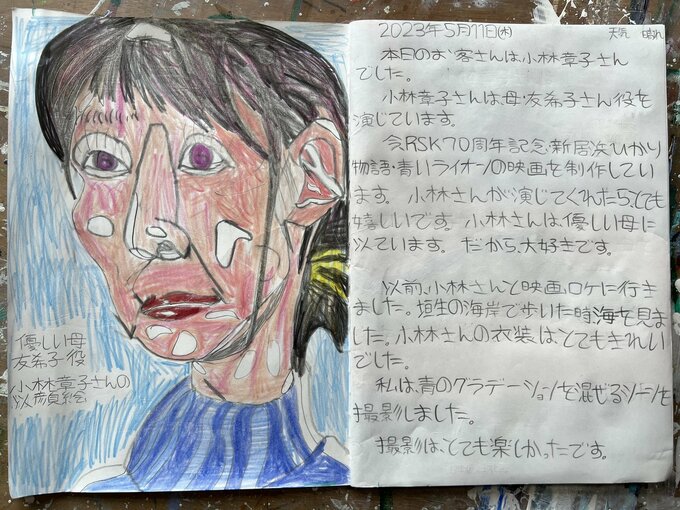 優しい母
友希子役
小林章子さんの
似顔絵
2023年5月11日(木) 天気 晴れ
本日のお客さんは、小林章子さん
でした。
小林章子さんは、母・友希子さん役を
演じています。
今、RSK70周年記念・新居浜ひかり
物語・青いライオンの映画を制作してい
ます。小林さんが演じてくれたら、とても
嬉しいです。小林さんは、優しい母に
似ています。だから、大好きです。
以前、小林さんと映画、ロケに行き
ました。垣生の海岸で歩いた時、海を見ま
した。小林さんの衣装は、とてもきれい
でした。
私は、青のグラデーションを混ぜるシーンを
撮影しました。
撮影は、とても楽しかったです。